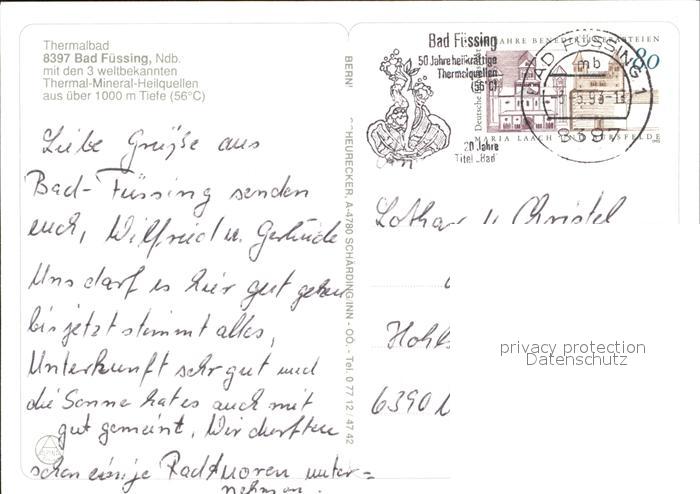 Thermalbad
8397 Bad Füssing, Ndb.
mit den 3 weltbekannten
Thermal-Mineral-Heilquellen
aus über 1000 m Tiefe (56°C)
Liebe Grüße aus
Bad-Füssing senden
euch, Wilfried u. Gertrude
Uns darf es hier gut gehen
bis jetzt stimmt alles,
Unterkunft sehr gut und
die Sonne hat es auch mit
gut gemeint. Wir durften
schon einige Radtouren unter=
nehmen.
HEURECKER, A-4780 SCHÄRDING/INN - OÖ. - Tel. 0 77 12 / 47 42
Bad Füssing
50 Jahre heilkräftige
Thermalquellen
(56°C)
20 Jahre
Titel „Bad"
JAHRE BENEDIKTINERABTEIEN
80
Deutsche
MARIA LAACH
BURSFELDE
BAD FÜSSING 1
mb
8397
Lothar u. Christel
6390
privacy protection
Datenschutz